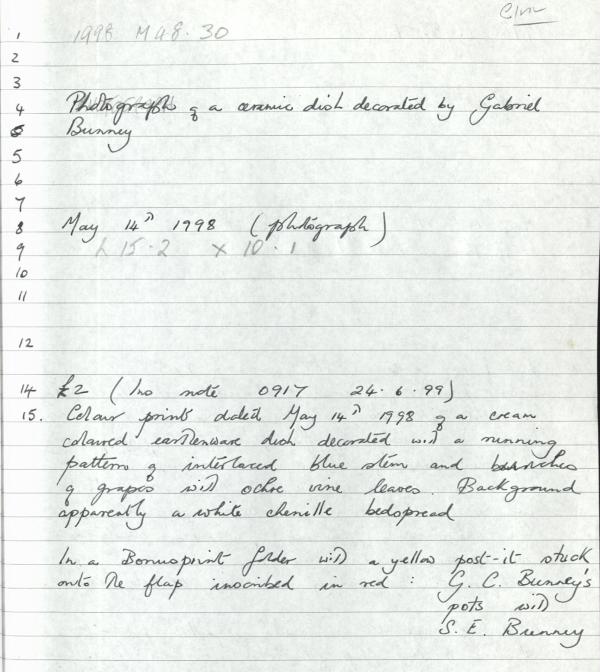 Civic
1 1998 M48.30
2
3
4 Photograph of a ceramic dish decorated by Gabriel
5 Bunney
5
6
7
8 May 14th 1998 (photograph)
9 h 15.2 x 10.1
10
11
12
14 £2 (Ino note 0917 24.6.99)
15. Colour print dated May 14th 1998 of a cream
coloured earthenware dish decorated with a running
pattern of interlaced blue stem and bunches
of grapes with ochre vine leaves. Background
apparently a white chenille bedspread
In a Bonusprint folder with a yellow post-it stuck
onto the flap inscribed in red : G. C. Bunney's
pots with
S. E. Bunney